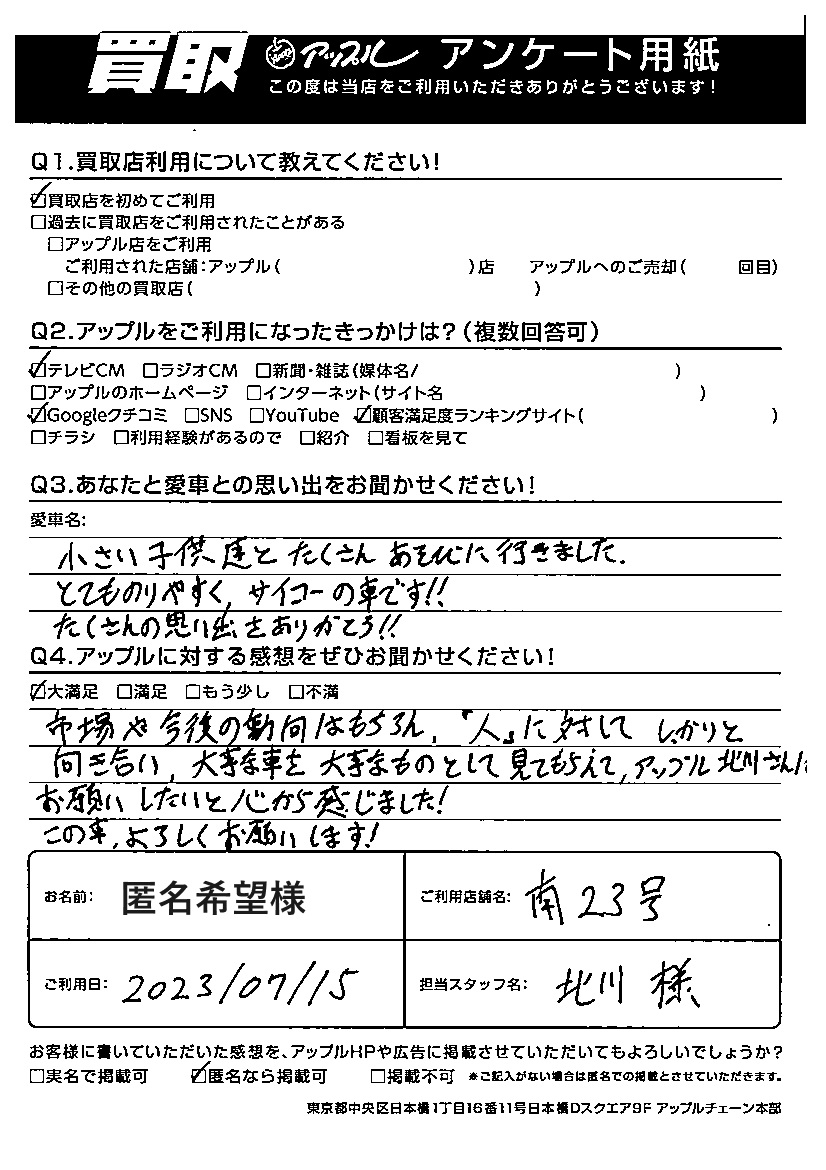 買取 アップル アンケート用紙
この度は当店をご利用いただきありがとうございます!
Q1.買取店利用について教えてください!
☑買取店を初めてご利用
□過去に買取店をご利用されたことがある
□アップル店をご利用
ご利用された店舗:アップル( )店 アップルへのご売却( 回目)
□その他の買取店( )
Q2.アップルをご利用になったきっかけは?(複数回答可)
☑テレビCM □ラジオCM □新聞・雑誌(媒体名/ )
□アップルのホームページ □インターネット(サイト名 )
☑Googleクチコミ □SNS □YouTube ☑顧客満足度ランキングサイト( )
□チラシ □利用経験があるので □紹介 □看板を見て
Q3.あなたと愛車との思い出をお聞かせください!
愛車名:
小さい子供達とたくさんあそびに行きました.
とてものりやすく,サイコーの車です!!
たくさんの思い出をありがとう!!
Q4.アップルに対する感想をぜひお聞かせください!
☑大満足 □満足 □もう少し □不満
市場や今後の動向はもちろん,「人」に対してしっかりと
向き合い,大事な車を大事なものとして見てもらえて,アップル北川さんに
お願いしたいと心から感じました!
この車,よろしくお願いします!
お名前: 匿名希望様
ご利用店舗名: 南23号
ご利用日: 2023/07/15
担当スタッフ名: 北川 様
お客様に書いていただいた感想を、アップルHPや広告に掲載させていただいてもよろしいでしょうか?
□実名で掲載可 ☑匿名なら掲載可 □掲載不可 ※ご記入がない場合は匿名での掲載とさせていただきます。
東京都中央区日本橋1丁目16番11号日本橋Dスクエア9F アップルチェーン本部